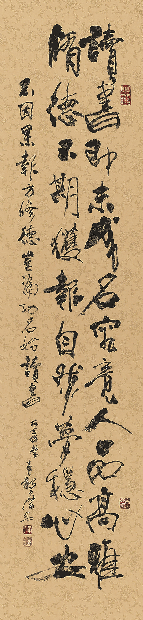 讀書即未成名究竟人品高雅
脩德不期獲報自然夢穩心安
不因果報方修德豈為功名始讀書